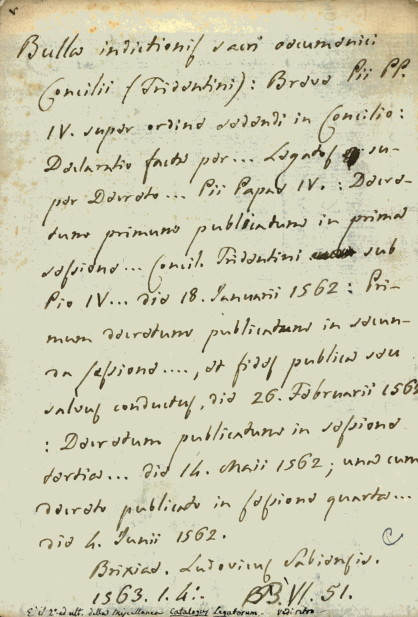 Bulla indictionis sacri oecumenici
Concilii (Tridentini): Breve Pii PP.
IV. super ordine sedendi in Concilio:
Declaratio facta per... Legatos su-
per Decreto... Pii Papae IV.: Decre-
tum primum publicatum in prima
sessione... Concil. Tridentini sub
Pio IV... die 18. Januarii 1562: Pri-
mum decretum publicatum in secun-
da sessione...., et fides publica seu
salvus conductus, die 26. Februarii 1562
: Decretum publicatum in sessione
tertia... die 14. Maii 1562; una cum
decreto publicato in sessione quarta...
die 4. Junii 1562.
Brixiae. Ludovicus Sabiensis.
1563. I. 4:. BB. VI. 51.
E' il 2° ed ult. della Miscellanea Catalogus Legatorum. vedi retro